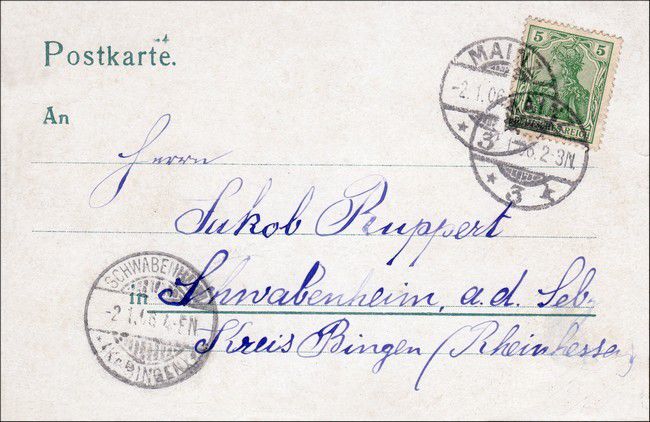 Postkarte.
An
Herrn
Jakob Ruppert
in Schwabenheim, a.d. Selz
Kreis Bingen (Rheinhessen)
MAINZ
-2.1.06
* 3 *
2-3N.
* 3 *
5 5
SCHWABENHEIM
-2.1.06 4-5N
(Kr. BINGEN)